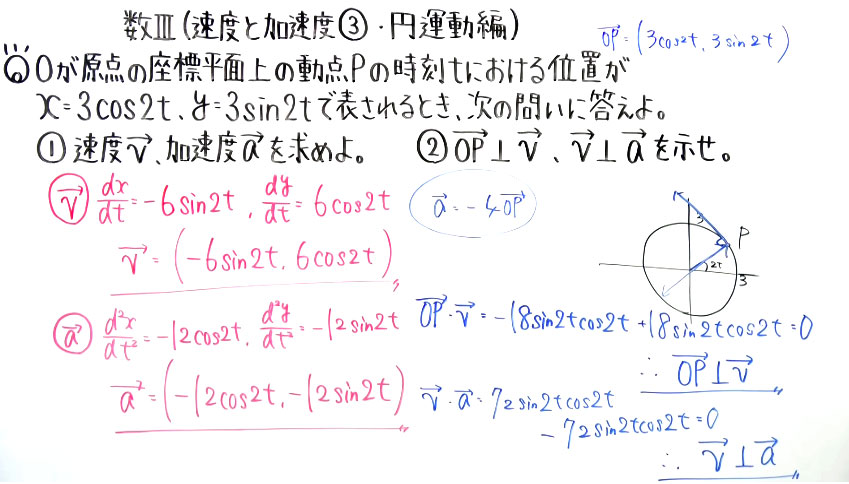 数Ⅲ(速度と加速度③・円運動編)
OP→=(3cos2t, 3sin2t)
Oが原点の座標平面上の動点Pの時刻tにおける位置が
x=3cos2t、y=3sin2tで表されるとき、次の問いに答えよ。
①速度v→、加速度a→を求めよ。 ②OP→⊥v→、v→⊥a→を示せ。
v→ dx/dt=-6sin2t, dy/dt=6cos2t
v→=(-6sin2t, 6cos2t)
a→ d²x/dt²=-12cos2t, d²y/dt²=-12sin2t
a→=(-12cos2t, -12sin2t)
a→=-4OP→
3
P
2t
3
OP→・v→=-18sin2tcos2t+18sin2tcos2t=0
∴ OP→⊥v→
v→・a→=72sin2tcos2t
-72sin2tcos2t=0
∴ v→⊥a→